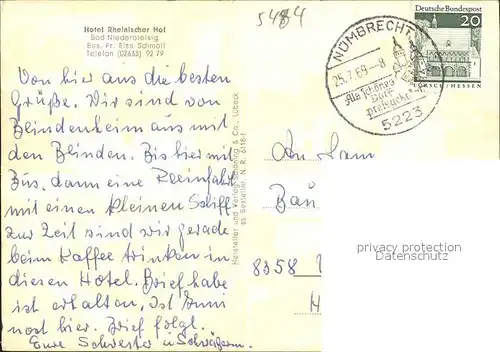 5484
Hotel Rheinischer Hof
Bad Niederbreisig
Bes. Fr. Else Schmoll
Telefon (02633) 92 79
Deutsche Bundespost
20
LORSCH / HESSEN
NÜMBRECHT
25.7.69-8
Als schönes
Dorf
preisgekrönt
5223
Von hier aus die besten
Grüße. Wir sind von
Blindenheim aus mit
den Blinden. Bis hier mit
Bus. dann eine Reeinfahrt
mit einen kleinen Schiff-
zur Zeit sind wir gerade
beim Kaffee trinken in
diesen Hotel. Brief habe
ist erhalten. Ist Euni
nost hier. Brief folgt.
Eure Schwester u Schwägerin.
Hersteller und Verlag Schöning & Co., Lübeck
Bestellnr. N. R. 6118/1
An Fam
Bau
privacy protection
Ansichtskartenversand.com
8358
H